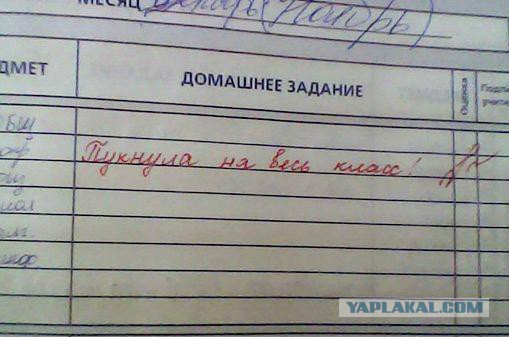 МЕСЯЦ Декабрь (Ноябрь)
ДМЕТ ДОМАШНЕЕ ЗАДАНИЕ Оценка Подпи учите
общ
Пукнула на весь класс!
YAPLAKAL.COM